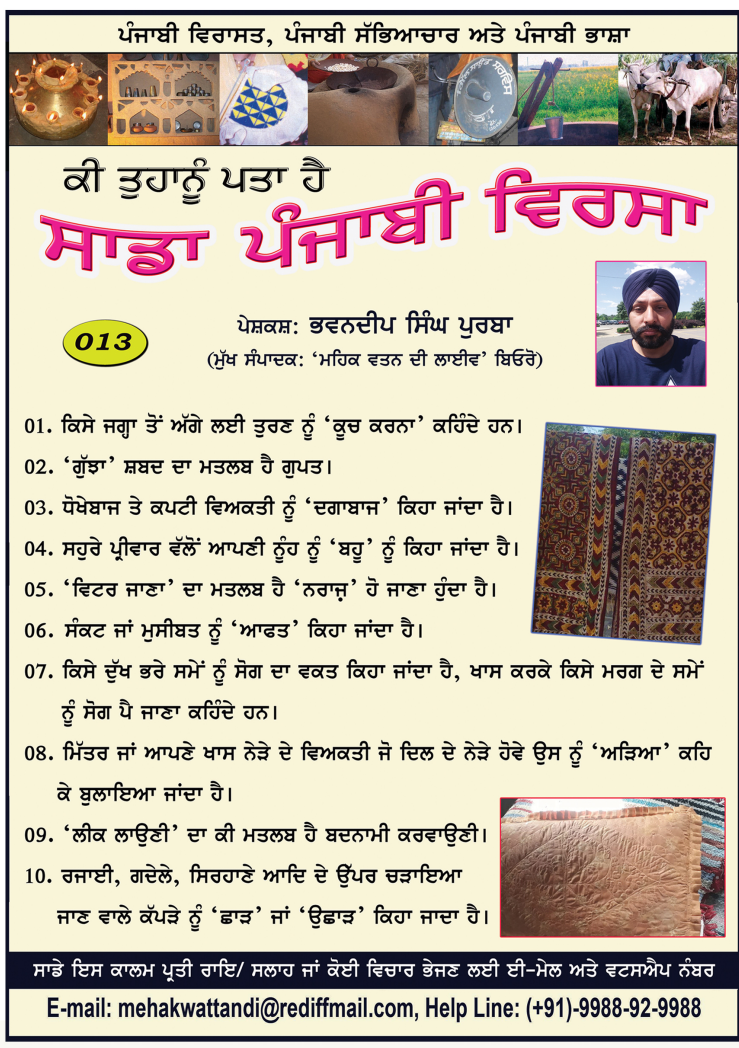 ਪੰਜਾਬੀ ਵਿਰਾਸਤ, ਪੰਜਾਬੀ ਸੱਭਿਆਚਾਰ ਅਤੇ ਪੰਜਾਬੀ ਭਾਸ਼ਾ
ਸਰਵਿਸ
ਕੀ ਤੁਹਾਨੂੰ ਪਤਾ ਹੈ
ਸਾਡਾ ਪੰਜਾਬੀ ਵਿਰਸਾ
013
ਪੇਸ਼ਕਸ਼: ਭਵਨਦੀਪ ਸਿੰਘ ਪੁਰਬਾ
(ਮੁੱਖ ਸੰਪਾਦਕ: ‘ਮਹਿਕ ਵਤਨ ਦੀ ਲਾਈਵ’ ਬਿਓਰੋ)
01. ਕਿਸੇ ਜਗ੍ਹਾ ਤੋਂ ਅੱਗੇ ਲਈ ਤੁਰਣ ਨੂੰ ‘ਕੂਚ ਕਰਨਾ’ ਕਹਿੰਦੇ ਹਨ।
02. ‘ਗੁੱਝਾ’ ਸ਼ਬਦ ਦਾ ਮਤਲਬ ਹੈ ਗੁਪਤ।
03. ਧੋਖੇਬਾਜ ਤੇ ਕਪਟੀ ਵਿਅਕਤੀ ਨੂੰ ‘ਦਗਾਬਾਜ’ ਕਿਹਾ ਜਾਂਦਾ ਹੈ।
04. ਸਹੁਰੇ ਪ੍ਰੀਵਾਰ ਵੱਲੋਂ ਆਪਣੀ ਨੂੰਹ ਨੂੰ ‘ਬਹੂ’ ਨੂੰ ਕਿਹਾ ਜਾਂਦਾ ਹੈ।
05. ‘ਵਿਟਰ ਜਾਣਾ’ ਦਾ ਮਤਲਬ ਹੈ ‘ਨਰਾਜ਼’ ਹੋ ਜਾਣਾ ਹੁੰਦਾ ਹੈ।
06. ਸੰਕਟ ਜਾਂ ਮੁਸੀਬਤ ਨੂੰ ‘ਆਫਤ’ ਕਿਹਾ ਜਾਂਦਾ ਹੈ।
07. ਕਿਸੇ ਦੁੱਖ ਭਰੇ ਸਮੇਂ ਨੂੰ ਸੋਗ ਦਾ ਵਕਤ ਕਿਹਾ ਜਾਂਦਾ ਹੈ, ਖਾਸ ਕਰਕੇ ਕਿਸੇ ਮਰਗ ਦੇ ਸਮੇਂ
ਨੂੰ ਸੋਗ ਪੈ ਜਾਣਾ ਕਹਿੰਦੇ ਹਨ।
08. ਮਿੱਤਰ ਜਾਂ ਆਪਣੇ ਖਾਸ ਨੇੜੇ ਦੇ ਵਿਅਕਤੀ ਜੋ ਦਿਲ ਦੇ ਨੇੜੇ ਹੋਵੇ ਉਸ ਨੂੰ ‘ਅੜਿਆ’ ਕਹਿ
ਕੇ ਬੁਲਾਇਆ ਜਾਂਦਾ ਹੈ।
09. ‘ਲੀਕ ਲਾਉਣੀ’ ਦਾ ਕੀ ਮਤਲਬ ਹੈ ਬਦਨਾਮੀ ਕਰਵਾਉਣੀ।
10. ਰਜਾਈ, ਗਦੇਲੇ, ਸਿਰਹਾਣੇ ਆਦਿ ਦੇ ਉੱਪਰ ਚੜਾਇਆ
ਜਾਣ ਵਾਲੇ ਕੱਪੜੇ ਨੂੰ ‘ਛਾੜ’ ਜਾਂ ‘ਉਛਾੜ’ ਕਿਹਾ ਜਾਦਾ ਹੈ।
ਸਾਡੇ ਇਸ ਕਾਲਮ ਪ੍ਰਤੀ ਰਾਇ/ ਸਲਾਹ ਜਾਂ ਕੋਈ ਵਿਚਾਰ ਭੇਜਣ ਲਈ ਈ-ਮੇਲ ਅਤੇ ਵਟਸਐਪ ਨੰਬਰ
E-mail: mehakwattandi@rediffmail.com, Help Line: (+91)-9988-92-9988